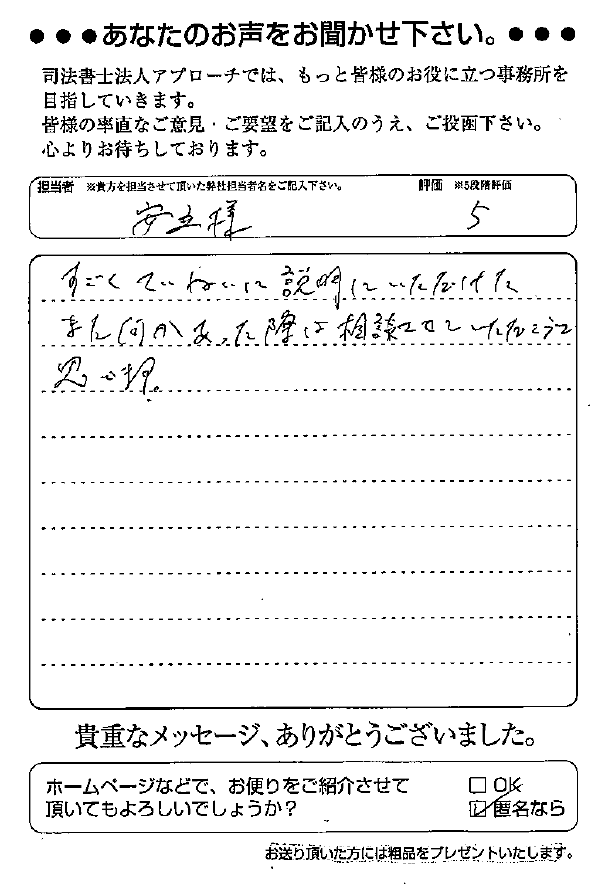 ●●●あなたのお声をお聞かせ下さい。●●●
司法書士法人アプローチでは、もっと皆様のお役に立つ事務所を
目指していきます。
皆様の率直なご意見・ご要望をご記入のうえ、ご投函下さい。
心よりお待ちしております。
担当者 ※貴方を担当させて頂いた弊社担当者名をご記入下さい。 評価 ※5段階評価
安立様 5
すごくていねいに説明していただけた
また何かあった際は相談させていただこうと
思います。
貴重なメッセージ、ありがとうございました。
ホームページなどで、お便りをご紹介させて □ OK
頂いてもよろしいでしょうか? ☑ 匿名なら
お送り頂いた方には粗品をプレゼントいたします。